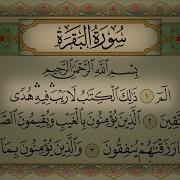 سورة البقرة
بِسْمِ اللَّهِ الرَّحْمَٰنِ الرَّحِيمِ
الٓمٓ ١ ذَٰلِكَ الْكِتَٰبُ لَا رَيْبَ فِيهِ هُدًى
٢ الَّذِينَ يُؤْمِنُونَ بِالْغَيْبِ وَيُقِيمُونَ
رَزَقْنَٰهُمْ يُنفِقُونَ ٣ وَالَّذِينَ يُؤْمِنُونَ بِمَا